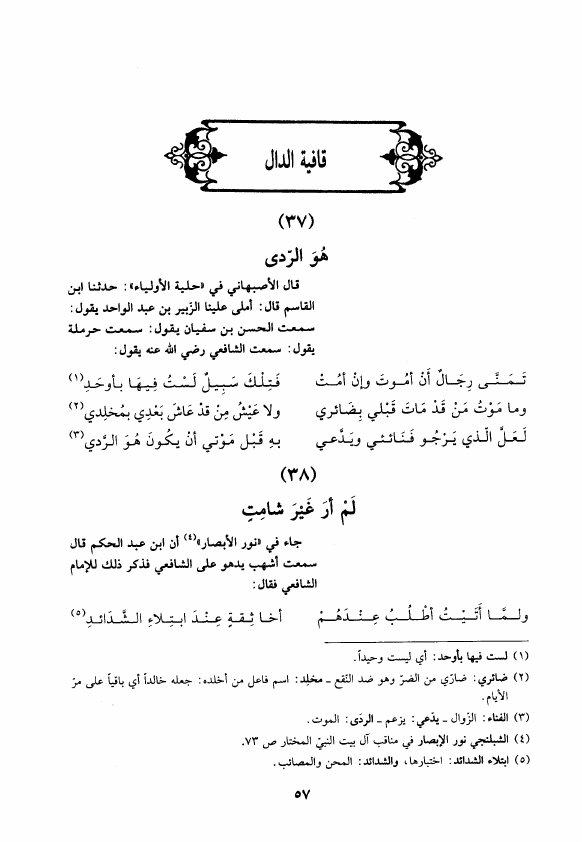 قافية الدال
(٣٧)
هُوَ الرّدى
قال الأصبهاني في «حلية الأولياء»: حدثنا ابن
القاسم قال: أملى علينا الزّبير بن عبد الواحد يقول:
سمعت الحسن بن سفيان يقول: سمعت حرملة
يقول: سمعت الشافعي رضي الله عنه يقول:
تَـمَنَّـى رِجَـالٌ أَنْ أمُـوتَ وإنْ أمُـتْ فَـتِلْكَ سَبِيلٌ لَسْتُ فِيهَا بأوحَدِ(١)
وما مَوْتُ مَنْ قَدْ مَاتَ قَبْلي بِضَائري ولا عَيْشُ مِنْ قدْ عَاشَ بَعْدِي بمُخلِدي(٢)
لَعَلَّ الّذي يَـرْجُـو فَـنَـائـي ويَـدَّعي بهِ قَبْل مَوْتي أنْ يكُونَ هُوَ الرَّدي(٣)
(٣٨)
لَمْ أرَ غَيْرَ شامِتٍ
جاء في «نور الأبصار»(٤) أن ابن عبد الحكم قال
سمعت أشهب يدهو على الشافعي فذكر ذلك للإمام
الشافعي فقال:
ولـمَّـا أَتَـيْـتُ أطْـلُـبُ عِـنـدَهُـمْ أخـا ثِـقـةٍ عِـنْـدَ ابـتِـلاءِ الـشَّـدائـدِ(٥)
(١) لست فيها بأوحد: أي ليست وحيداً.
(٢) ضائري: ضارّي من الضرّ وهو ضد النّفع ـ مخلِد: اسم فاعل من أخلده: جعله خالداً أي باقياً على مرّ
الأيام.
(٣) الفناء: الزّوال ـ يدّعي: يزعم ـ الردَى: الموت.
(٤) الشبلنجي نور الإبصار في مناقب آل بيت النبيّ المختار ص ٧٣.
(٥) ابتلاء الشدائد: اختبارها، والشدائد: المحن والمصائب.
٥٧